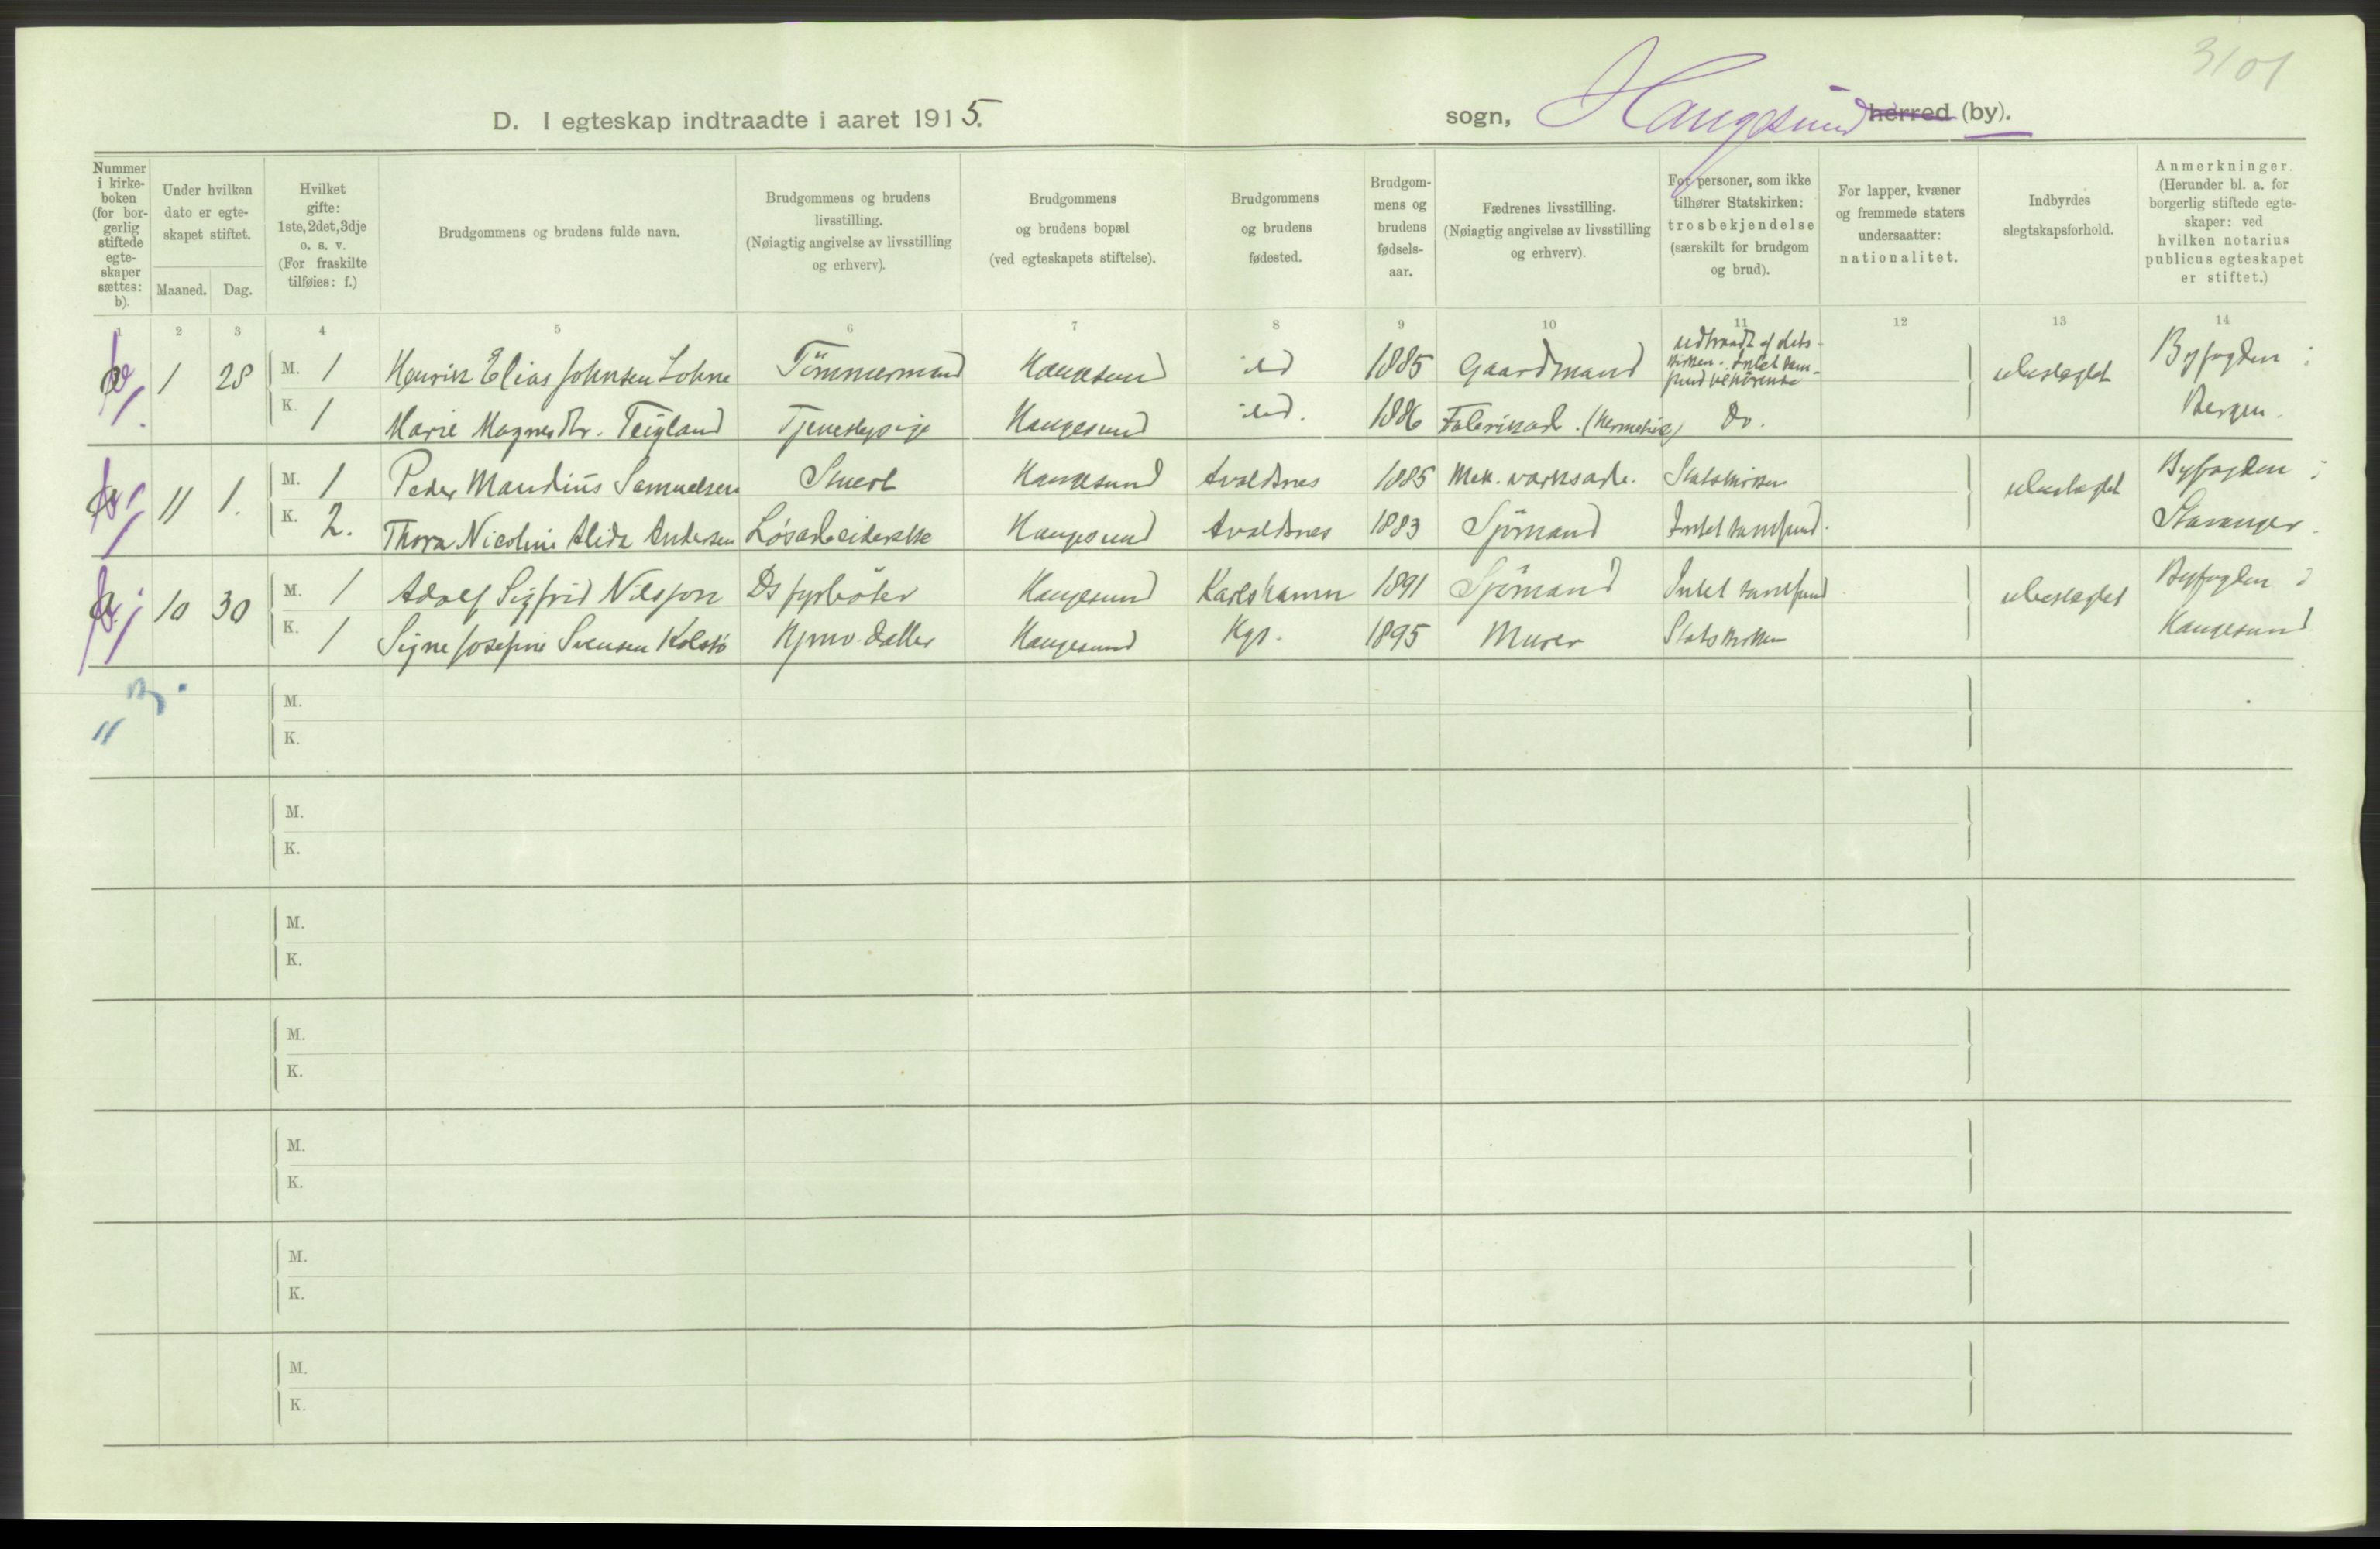 3101
D. I egteskap indtraadte i aaret 1915.
sogn, Haugesund herred (by).
Nummer i kirkeboken (for borgerlig stiftede egteskaper sættes: b).
Under hvilken dato er egteskapet stiftet.
Maaned. Dag.
Hvilket gifte: 1ste, 2det, 3dje o. s. v. (For fraskilte tilføies: f.)
Brudgommens og brudens fulde navn.
Brudgommens og brudens livsstilling. (Nøiagtig angivelse av livsstilling og erhverv).
Brudgommens og brudens bopæl (ved egteskapets stiftelse).
Brudgommens og brudens fødested.
Brudgommens og brudens fødselsaar.
Fædrenes livsstilling. (Nøiagtig angivelse av livsstilling og erhverv).
For personer, som ikke tilhører Statskirken: trosbekjendelse (særskilt for brudgom og brud).
For lapper, kvæner og fremmede staters undersaatter: nationalitet.
Indbyrdes slegtskapsforhold.
Anmerkninger. (Herunder bl. a. for borgerlig stiftede egteskaper: ved hvilken notarius publicus egteskapet er stiftet.)
1 2 3 4 5 6 7 8 9 10 11 12 13 14
1 28 M. 1 Henrik Elias Johnsen Lohne Tömmermand Haugesund 1885 Gaardmand udtraadt af statskirken. Intet samfund tilhörende ubeslegtet Byfogden i
K. 1 Marie Magnesdtr. Teigland Tjenestepige Haugesund 1886 Fabrikarb. (Hermetik) Do. Bergen.
11 1. M. 1 Peder Mandius Samuelsen Stuert Haugesund Avaldsnes 1885 Mek. værksarb. Statskirken ubeslegtet Byfogden i
K. 2. Thora Nicoline Alida Andersen Løsarbeiderske Haugesund Avaldsnes 1883 Sjömand Intet samfund. Stavanger.
10 30 M. 1 Adolf Sigfrid Nilsson Ds fyrböter Haugesund Karlshamn 1891 Sjömand Intet samfund ubeslegtet Byfogden i
K. 1 Signe Josefine Svensen Kolstö Hjmv. datter Haugesund Hgs. 1895 Murer Statskirken Haugesund
M.
K.
M.
K.
M.
K.
M.
K.
M.
K.
M.
K.
M.
K.